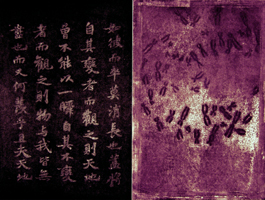 如彼而卒莫消長也蓋將
自其變者而觀之則天地
曾不能以一瞬自其不變
者而觀之則物與我皆無
盡也而又何羨乎且夫天地